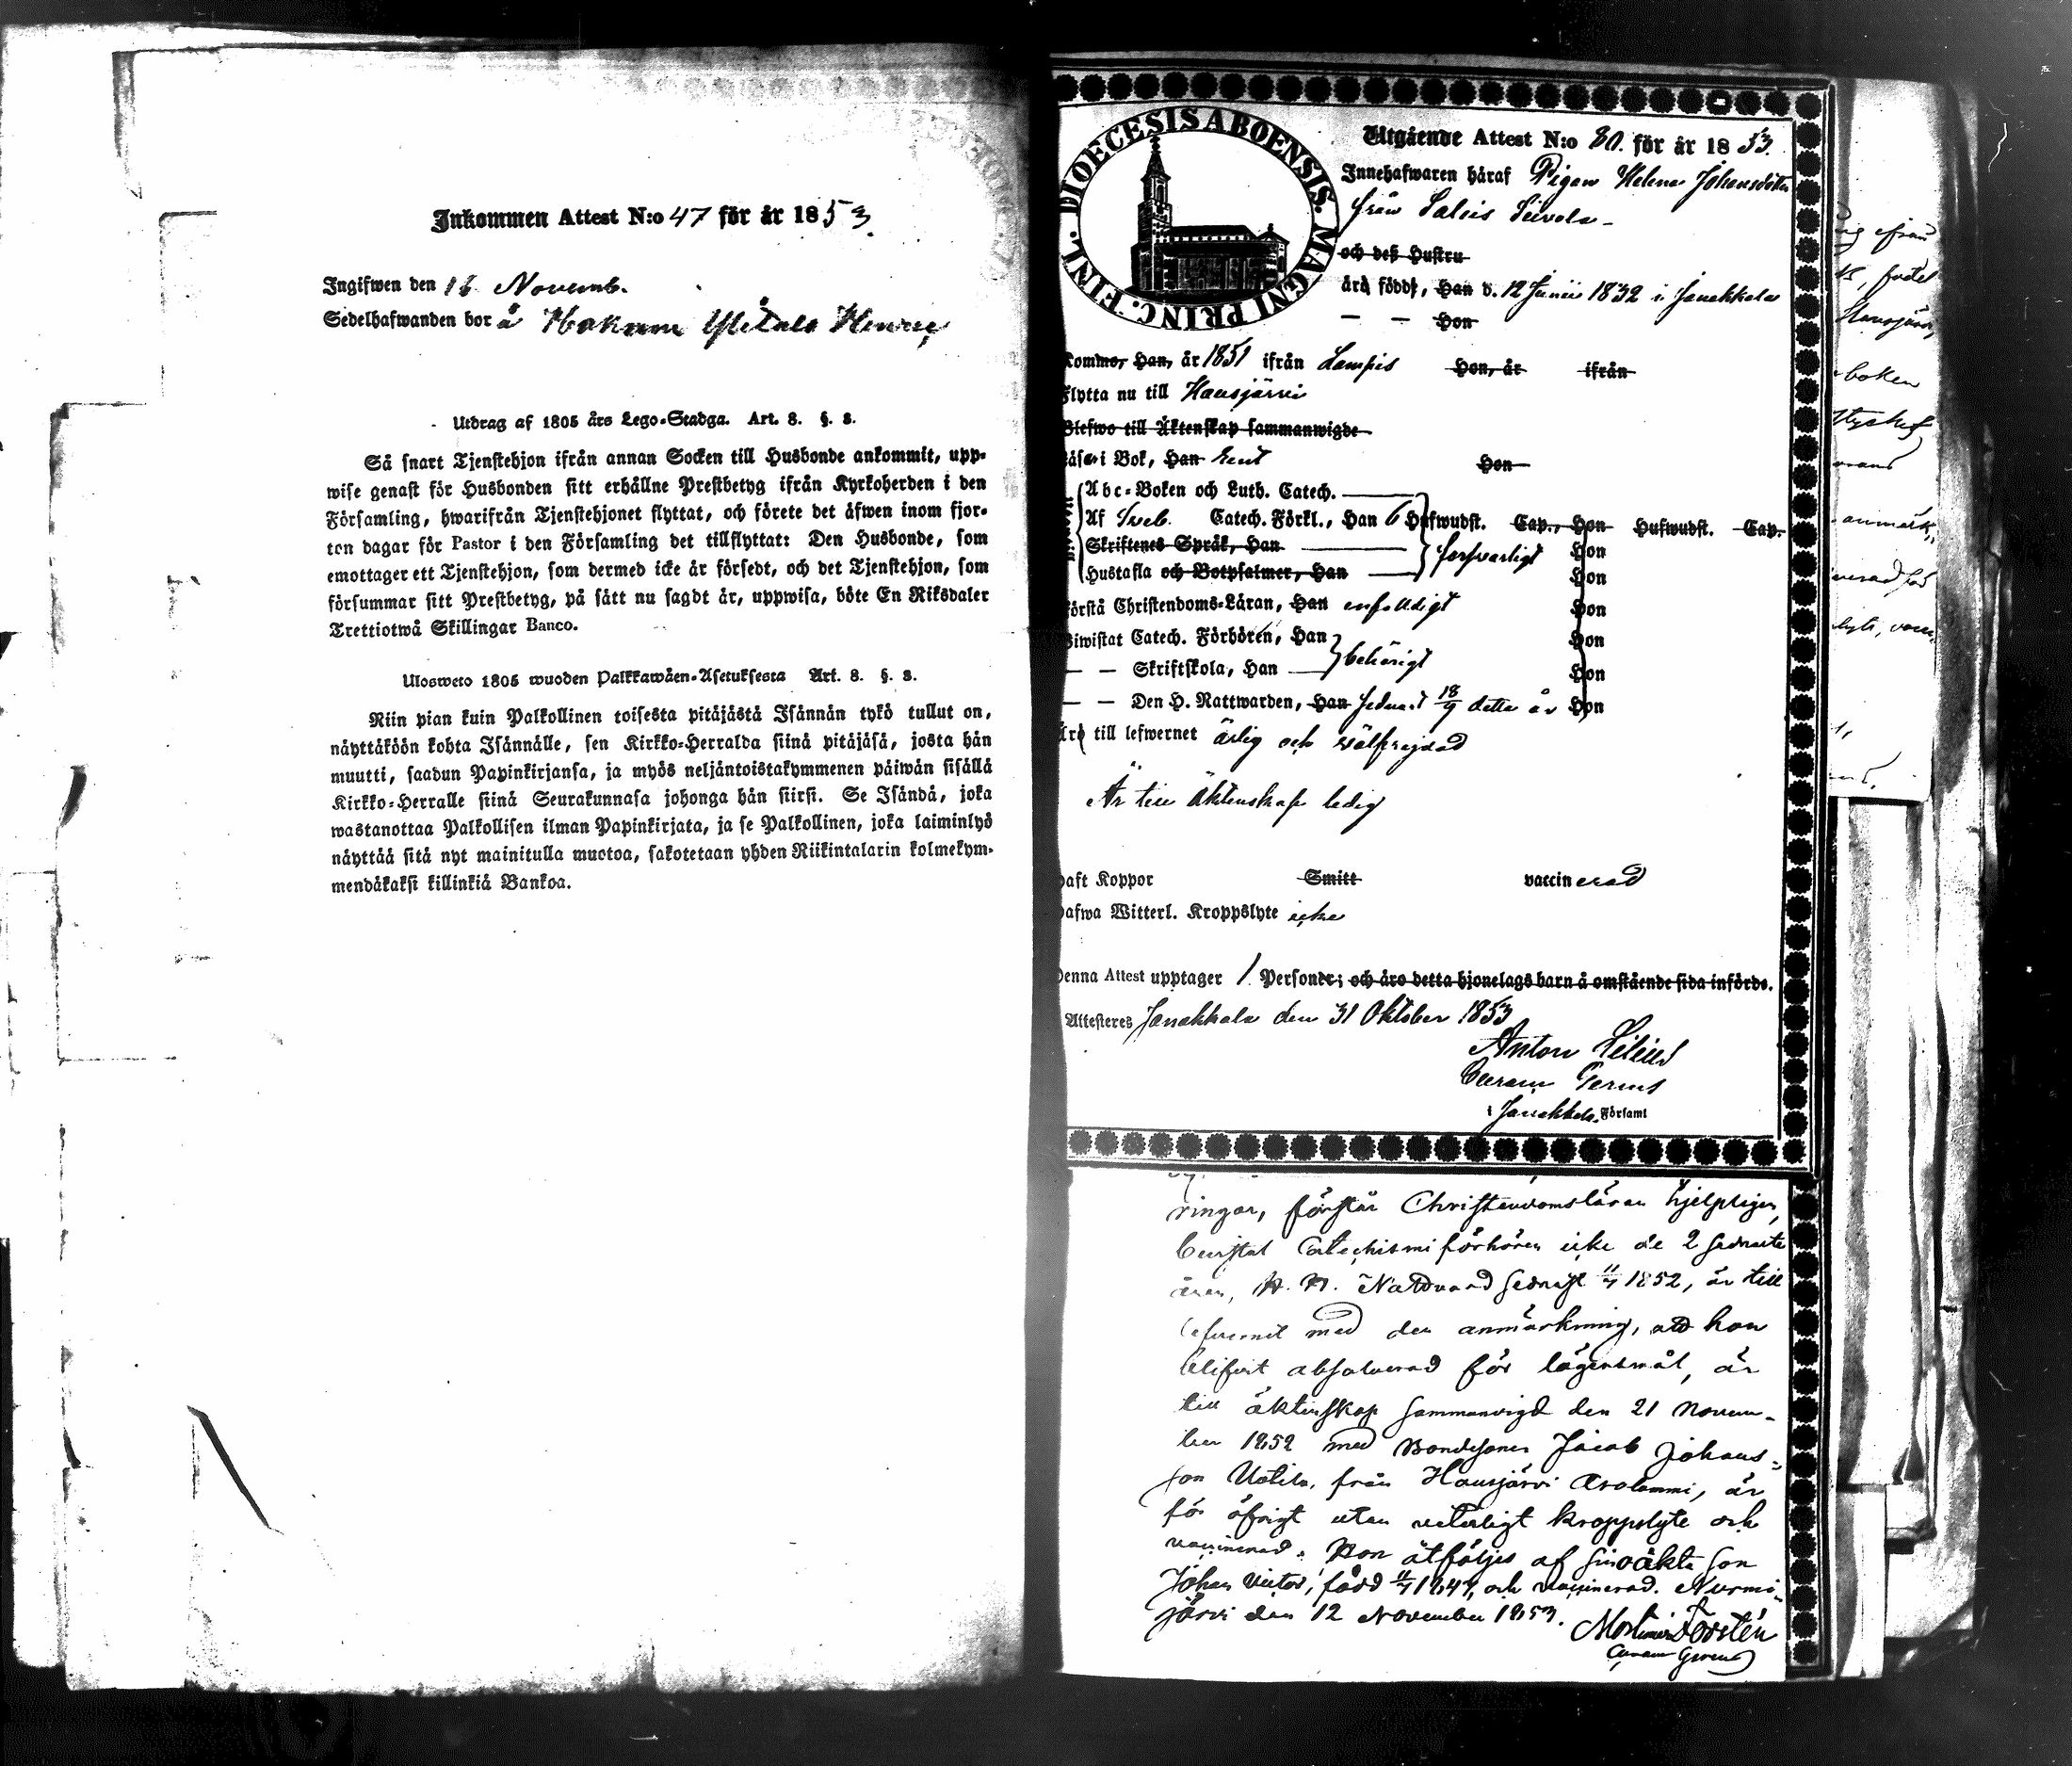 Inkommen Attest N:o 47 för år 1853.
Ingifwen den 16 Novemb.
Sedelhafwanden bor å
Utdrag af 1805 års Lego-Stadga. Art. 8. §. 8.
Så snart Tjenstehjon ifrån annan Socken till Husbonde ankommit, upp-
wise genast för Husbonden sitt erhållne Prestbetyg ifrån Kyrkoherden i den
Församling, hwarifrån Tjenstehjonet flyttat, och förete det äfwen inom fjor-
ton dagar för Pastor i den Församling det tillflyttat: Den Husbonde, som
emottager ett Tjenstehjon, som dermed icke är försedt, och det Tjenstehjon, som
försummar sitt Prestbetyg, på sätt nu sagdt är, uppwisa, böte En Riksdaler
Trettiotwå Skillingar Banco.
Ulosweto 1805 wuoden Palkkawäen-Asetuksesta Art. 8. §. 8.
Niin pian kuin Palkollinen toisesta pitäjästä Isännän tykö tullut on,
näyttäköön kohta Isännälle, sen Kirkko-Herralda siinä pitäjäsä, josta hän
muutti, saadun Papinkirjansa, ja myös neljäntoistakymmenen päiwän sisällä
Kirkko-Herralle siinä Seurakunnasa johonga hän siirsi. Se Isändä, joka
wastanottaa Palkollisen ilman Papinkirjata, ja se Palkollinen, joka laiminlyö
näyttää sitä nyt mainitulla muotoa, sakotetaan yhden Riikintalarin kolmekym-
mendäkaksi killinkiä Bankoa.
DIOECESIS ABOENSIS. MAGNI PRINC. FINL.
Utgående Attest N:o 80. för år 1853.
Innehafwaren häraf Pigan Helena Johansdotter
från Salois Seivola
och deß Hustru
äro född, Han d. 12 Junii 1832 i Janakkala
— — Hon
Kommo, Han, år 1851 ifrån Lampis Hon, år ifrån
Flytta nu till Hausjärvi
Blefwo till Äktenskap sammanwigde
Läsa i Bok, Han rent Hon
Abc-Boken och Luth. Catech.
Af Sveb. Catech. Förkl., Han 6 Hufwudst. Cap., Hon Hufwudst. Cap.
Skriftenes Språk, Han försvarligt Hon
Hustafla och Botpsalmer, Han Hon
Förstå Christendoms-Läran, Han enfaldigt Hon
Biwistat Catech. Förhören, Han Hon
— — Skriftskola, Han behörigt Hon
— — Den H. Nattwarden, Han sednast 18/9 detta år Hon
Äro till lefwernet ärlig och välfrejdad
Är till äktenskap ledig
Haft Koppor Smitt vaccinerad
Hafwa Witterl. Kroppslyte icke
Denna Attest upptager 1 Personer; och äro detta hjonelags barn å omstående sida införde.
Attesteres Janakkala den 31 Oktober 1853
Anton Lilius
Curam Gerens
i Janakkala Församl
ringar, förstår Christendomsläran hjelpligen,
bevistat Catechismiförhören icke de 2 sednaste
åren, H. H. Nattvard sednast 1852, är till
lefvernet med den anmärkning, att hon
blifvit absolverad för lägersmål, är
till äktenskap sammanvigd den 21 Novem-
ber 1852 med Bondesonen Jacob Johans-
son Uotila, från Hausjärvi Arolammi, är
för öfrigt utan veterligt kroppslyte och
vaccinerad. Hon åtföljes af sin oäkta son
Johan Victor, född 1847, och vaccinerad. Nurmi-
järvi den 12 November 1853.
Mortimer Forstén
Curam Gerens